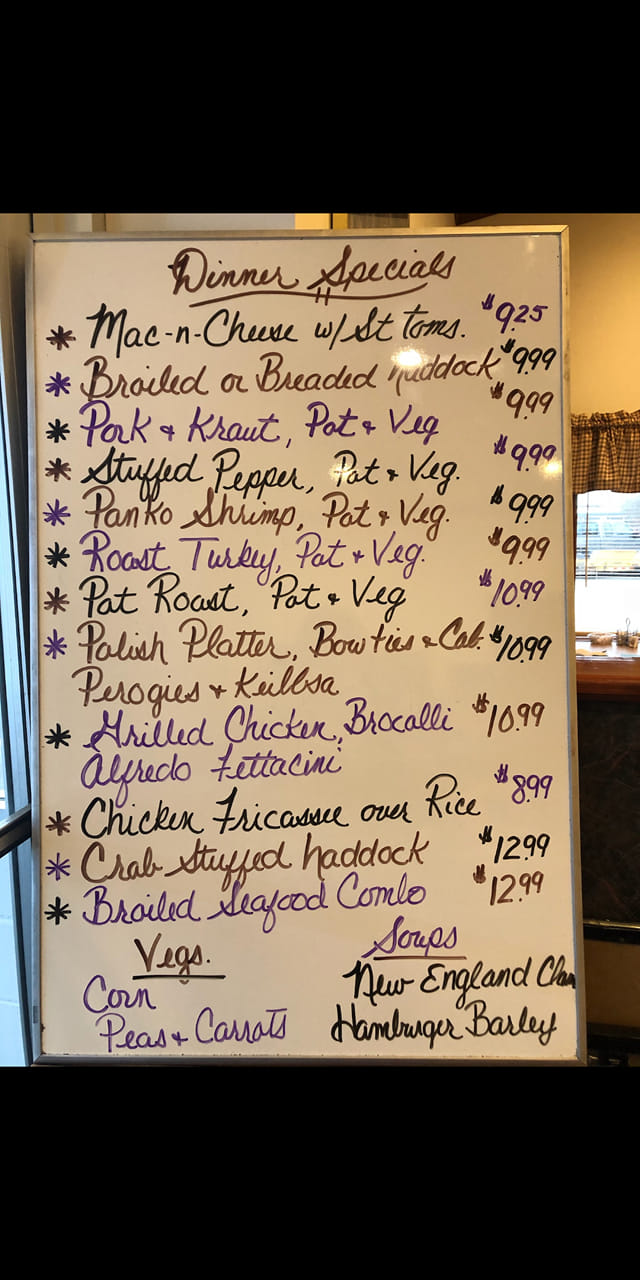 Dinner Specials
* Mac-n-Cheese w/ St Toms. $9.25
* Broiled or Breaded Haddock $9.99
* Pork + Kraut, Pot + Veg $9.99
* Stuffed Pepper, Pot + Veg. $9.99
* Panko Shrimp, Pot + Veg. $9.99
* Roast Turkey, Pot + Veg. $9.99
* Pot Roast, Pot + Veg $10.99
* Polish Platter, Bowties + Cab. $10.99
Perogies + Keilbsa
* Grilled Chicken, Brocolli $10.99
Alfredo Fettacini
* Chicken Fricassee over Rice $8.99
* Crab Stuffed haddock $12.99
* Broiled Seafood Combo $12.99
Vegs.
Corn
Peas + Carrots
Soups
New England Clam
Hamburger Barley